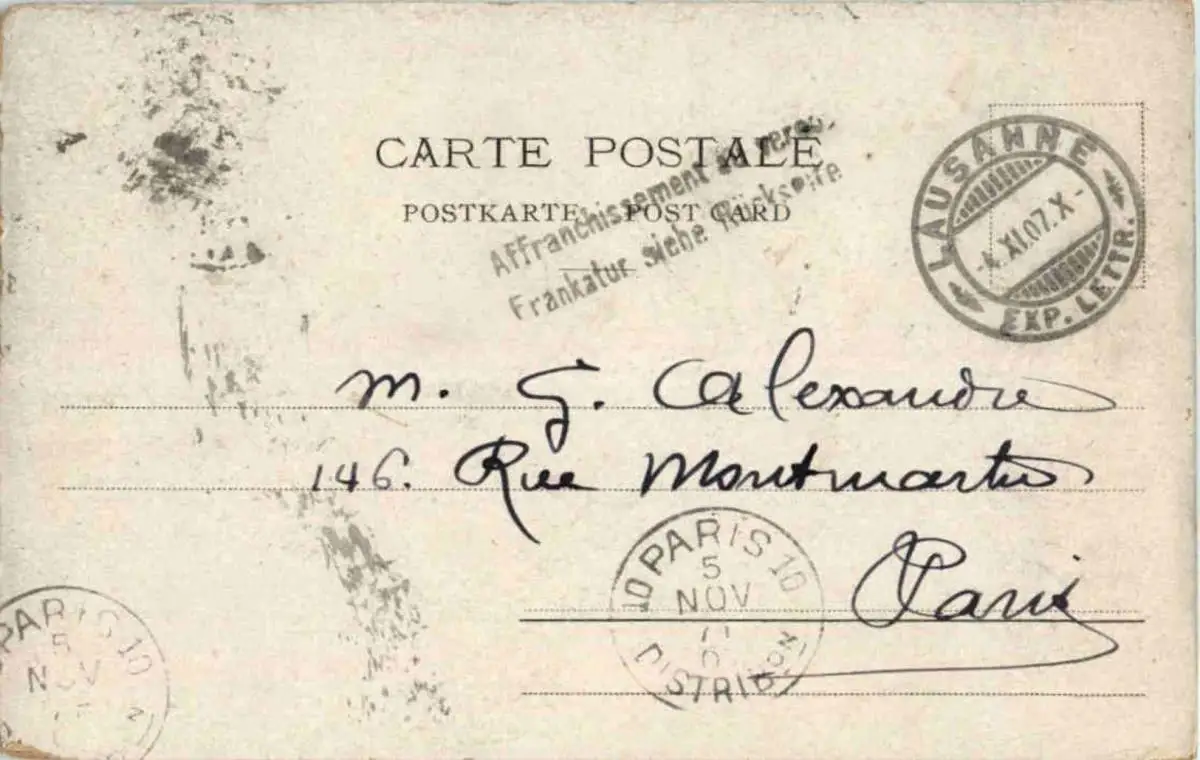 CARTE POSTALE
Affranchissement au verso.
POSTKARTE POST CARD
Frankatur siehe Rückseite
LAUSANNE
XI.07.X-
EXP. LETTR.
M. G. Alexandre
146. Rue Montmartre
Paris
10 PARIS 10
5
NOV
DISTRIBON
PARIS 10
5
NOV